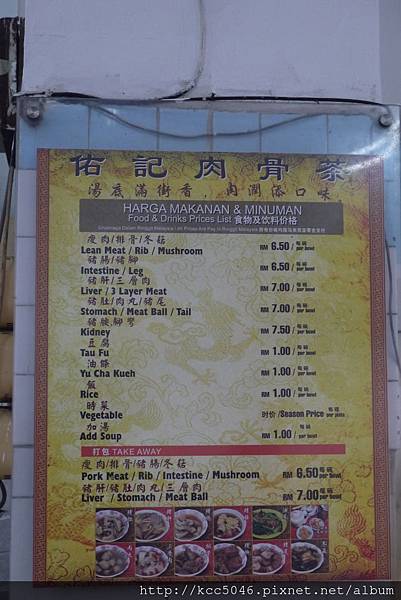 佑記肉骨茶
湯底滿街香，肉潤添口味
HARGA MAKANAN & MINUMAN
Food & Drinks Prices List 食物及饮料价格
瘦肉/排骨/冬菇
Lean Meat / Rib / Mushroom RM 6.50 / 每碗 per bowl
豬腸/豬腳
Intestine / Leg RM 6.50 / 每碗 per bowl
豬肝/三層肉
Liver / 3 Layer Meat RM 7.00 / 每碗 per bowl
豬肚/肉丸/豬尾
Stomach / Meat Ball / Tail RM 7.00 / 每碗 per bowl
豬腰
Kidney RM 7.50 / 每碗 per bowl
豆腐
Tau Fu RM 1.00 / 每碗 per bowl
油條
Yu Cha Kueh RM 1.00 / 每碗 per bowl
飯
Rice RM 1.00 / 每碗 per bowl
時菜
Vegetable 时价 /Season Price
加湯
Add Soup RM 1.00 / 每碗 per bowl
打包 TAKE AWAY
瘦肉/排骨/豬腸/冬菇
Pork Meat / Rib / Intestine / Mushroom RM 6.50 每碗 per bowl
豬肝/豬肚/肉丸/三層肉
Liver / Stomach / Meat Ball RM 7.00 每碗 per bowl
http://kcc5046.pixnet.net/album